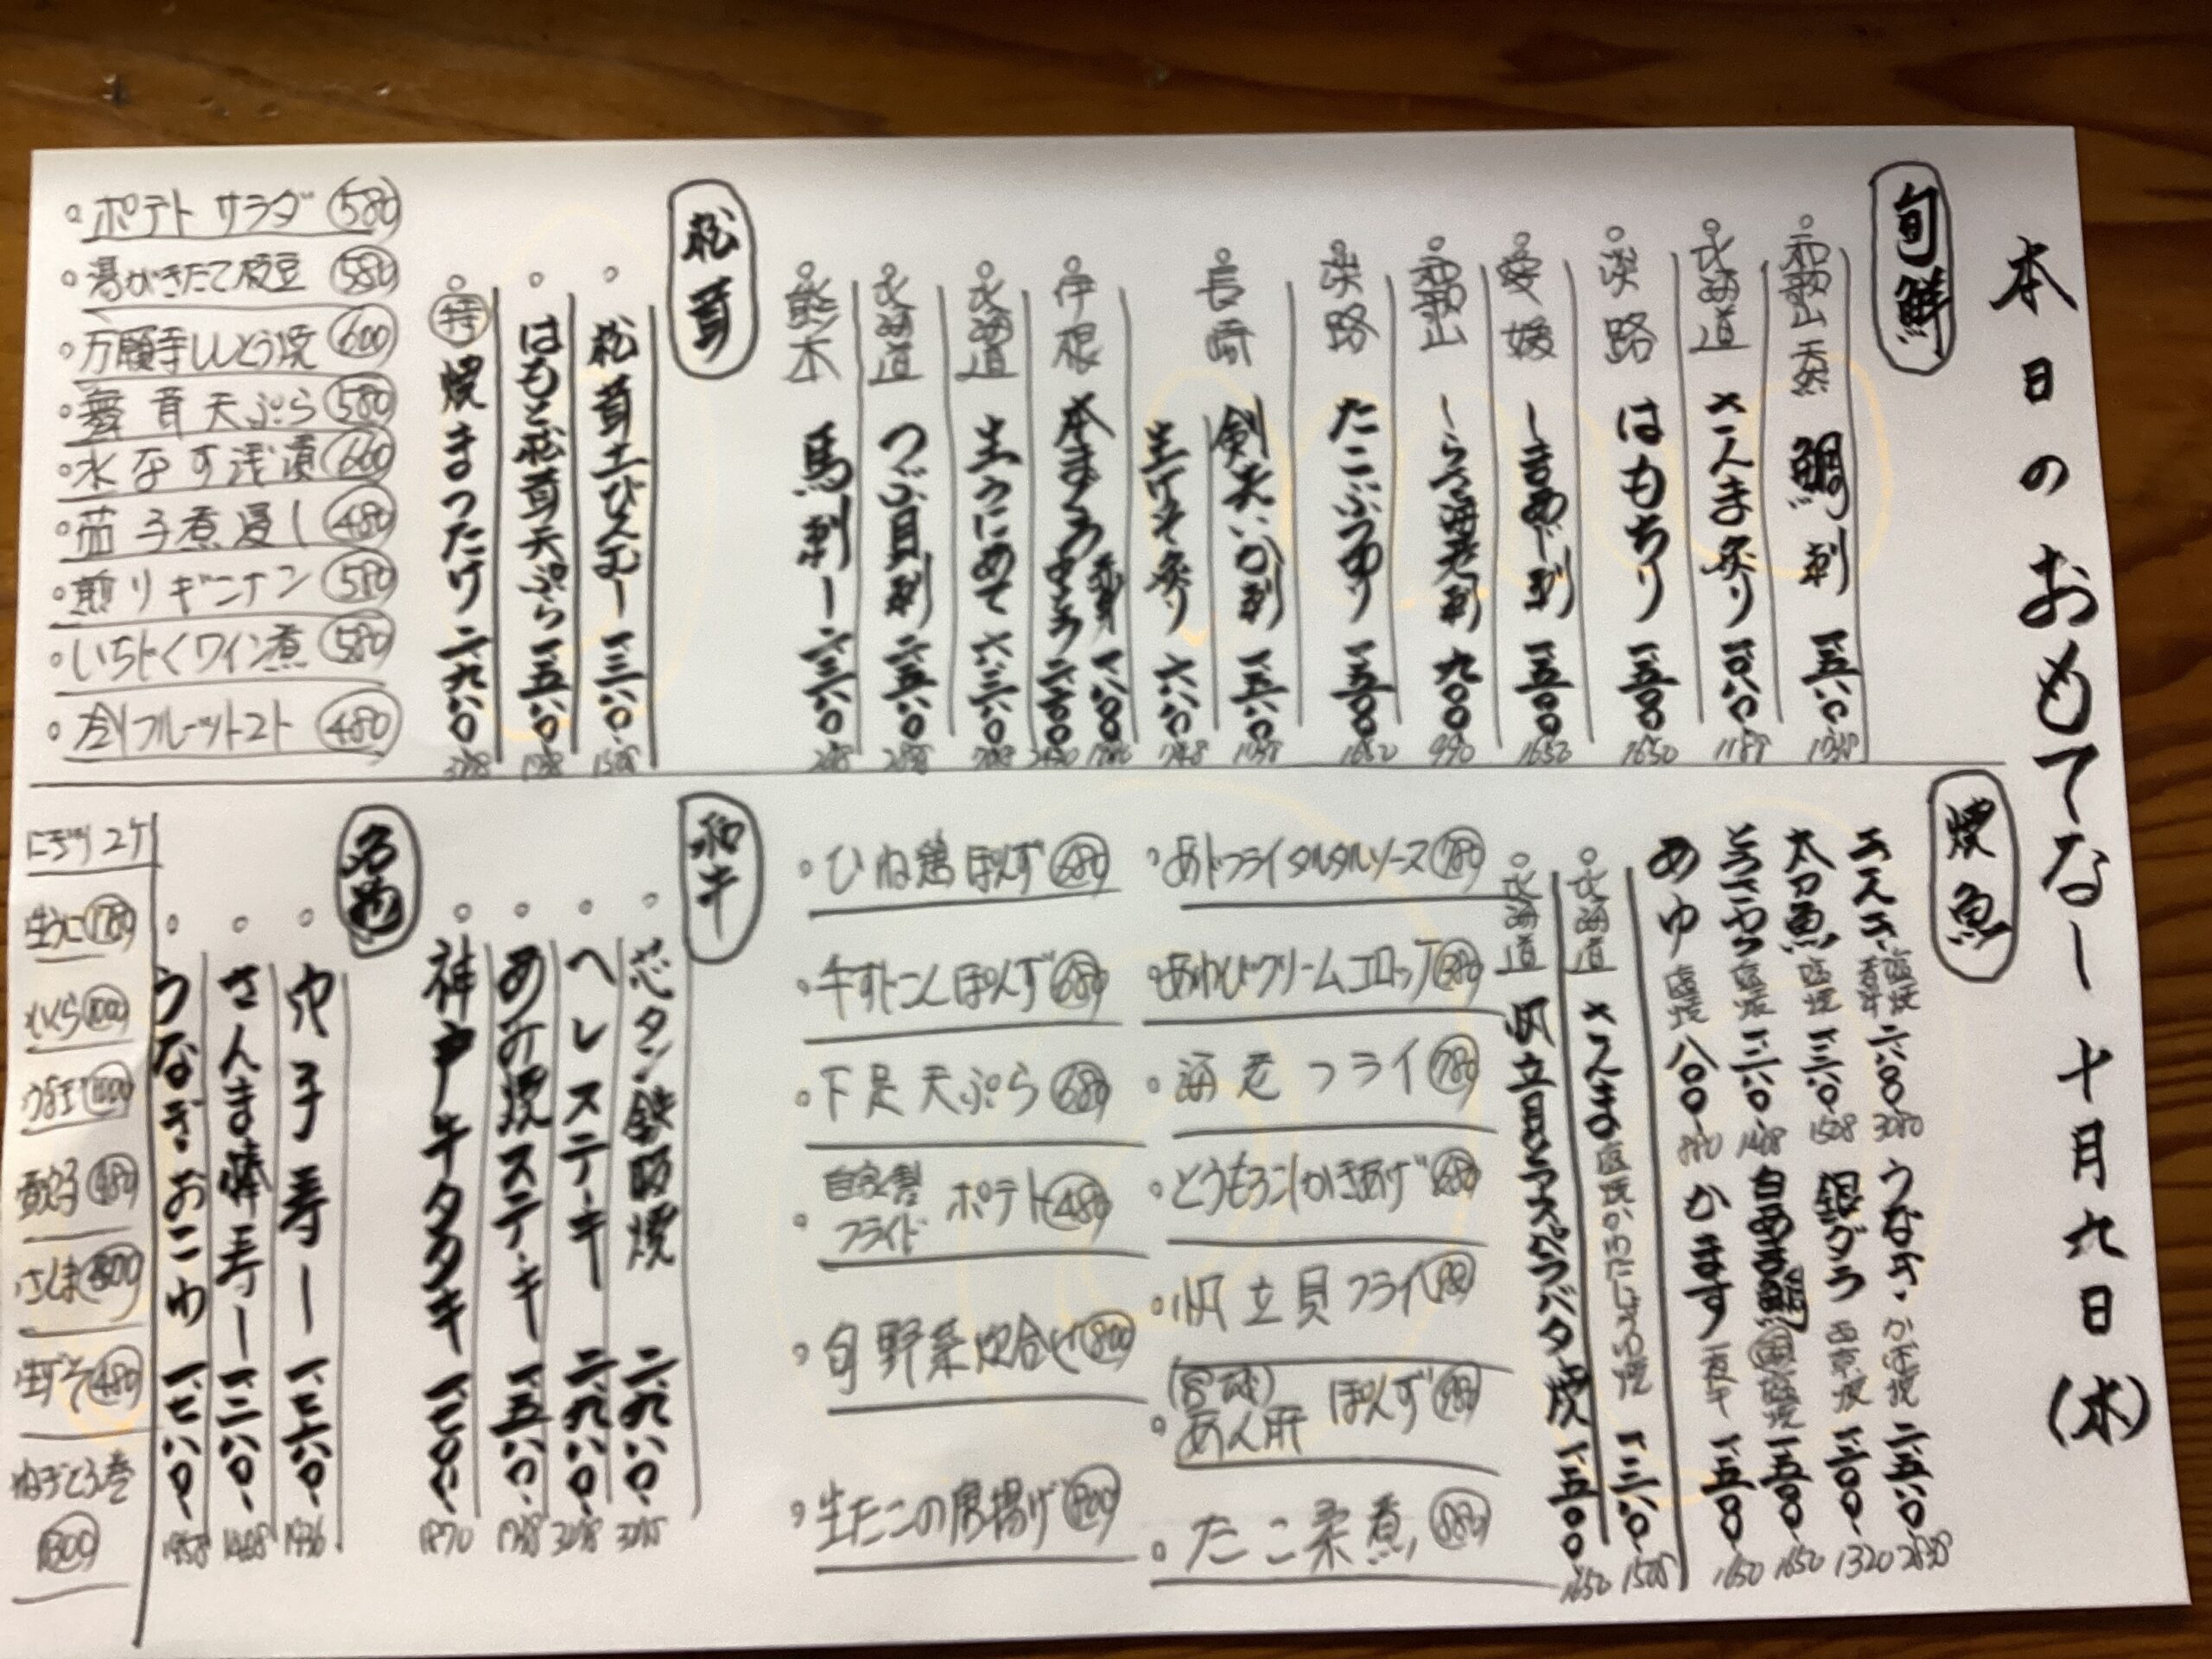 本日のおもてなし 十月九日(水)
旬鮮
和歌山 天然 鯛刺 一五八〇 1738
北海道 さんま炙り 一〇八〇 1188
淡路 はもちり 一五〇〇 1650
愛媛 しまあじ刺 一五〇〇 1650
和歌山 しらさ海老刺 九〇〇 990
淡路 たこぶつ切り 一五〇〇 1650
長崎 剣先いか刺 一五八〇 1738
生げそ炙り 六八〇 748
伊根 本まぐろ 赤身 一六八〇
中とろ 二二〇〇
北海道 生うにめて 六三八〇
北海道 つぶ貝刺 二三五〇
熊本 馬刺し 二三八〇
松茸
松茸土びんむし 一三八〇 1518
はもと松茸天ぷら 一五八〇 1738
特 焼まつたけ 二九八〇 3278
ポテトサラダ 580
湯がきたて枝豆 580
万願寺ししとう焼 600
舞茸天ぷら 580
水なす浅漬 660
茄子煮浸し 480
煎りギンナン 580
いちじくワイン煮 580
フルーツトマト 480
焼魚
塩焼 二八〇〇 3080
太刀魚 塩焼 一三八〇 1518
塩焼 一三八〇
あゆ 塩焼 八〇〇 880
うなぎ かば焼 二五八〇 2838
銀ダラ 西京焼 一二〇〇 1320
白あま鯛 塩焼 一五〇〇 1650
かます 一夜干 一五〇〇 1650
北海道 さんま 塩焼 一三八〇 1518
北海道 帆立貝とアスパラバター焼 一五〇〇 1650
あじフライタルタルソース 780
あわびクリームコロッケ
海老フライ 780
とうもろこしかきあげ 680
帆立貝フライ
あん肝 ぽんず
たこ柔煮 880
ひね鶏ぽんず 680
牛すじこんぽんず 680
下足天ぷら 680
自家製 フライド ポテト 480
旬野菜炊合せ 800
生たこの唐揚げ
和牛
芯タン鉄板焼 二九八〇
ヘレステーキ 二九八〇 3278
あみ焼ステーキ 一五八〇 1738
神戸牛タタキ 一七〇〇 1870
名物
穴子寿し 一七六〇 1936
さんま棒寿し 一二八〇 1408
うなぎおこわ 一七八〇 1958
にぎり 2ケ
生うに 1780
いくら 1000
うなぎ 1000
穴子 480
さんま 800
生げそ 480
ねぎとろ巻
1300